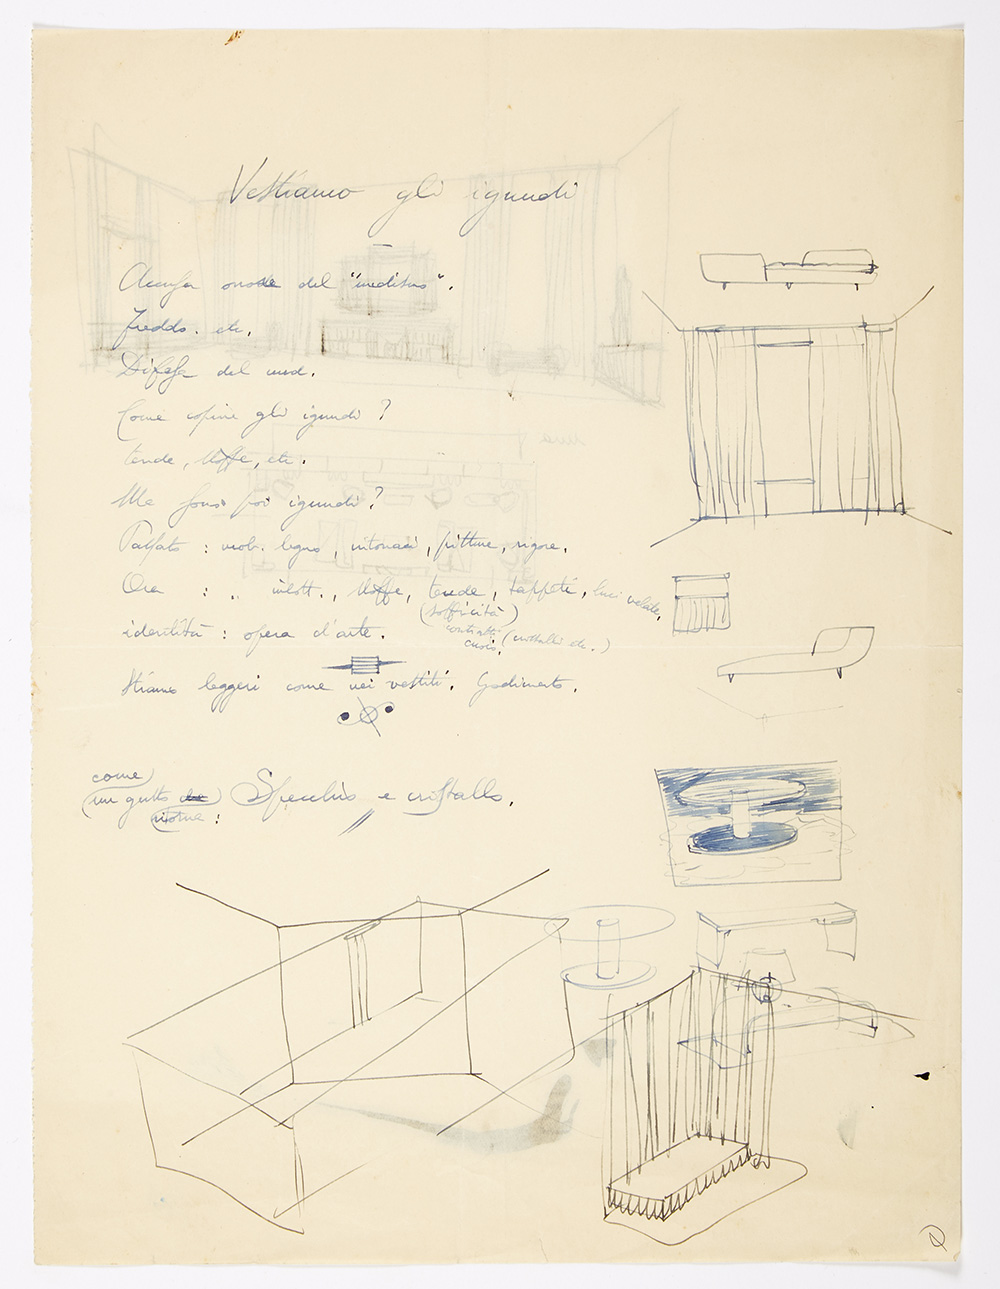 Vestiamo gli ignudi
del "meditus".
Freddo. etc.
Difesa del nud.
Come coprire gli ignudi?
tende, stoffe, etc.
Ma sono poi ignudi?
Passato : mob. legno, intonaci, pitture, rigore.
Ora : " imbott., stoffe, tende, tappeti, luci velate,
(sofficità)
contrasti (cristalli etc.)
identità : opera d'arte.
Stiamo leggeri come nei vestiti. Godimento.
come
(un gusto Specchio e cristallo.